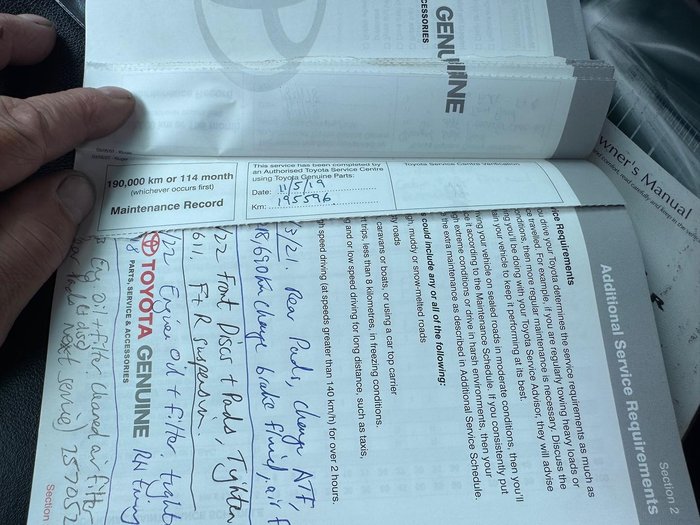 GENUINE
CESSORIES
190,000 km or 114 month
(whichever occurs first)
Maintenance Record
This service has been completed by
an Authorised Toyota Service Centre
using Toyota Genuine Parts:
Date: 11/5/19
Km: 195596
Toyota Service Centre Verification
wner's Manual
Section 2
Additional Service Requirements
ice Requirements
ou drive your Toyota determines the service requirements as much as
ce travelled. For example, if you are regularly towing heavy loads or
nditions, then more regular maintenance is necessary. Discuss the
ng you'll be doing with your Toyota Service Advisor, they will advise
ain your vehicle to keep it performing at its best.
wing your vehicle on sealed roads in moderate conditions, then you'll
ce it according to the Maintenance Schedule. If you consistently put
gh extreme conditions or drive in harsh environments, then you'll
the extra maintenance as described in Additional Service Schedule.
s could include any or all of the following:
gh, muddy or snow-melted roads
ty roads
caravans or boats, or using a car top carrier
t trips, less than 8 kilometres, in freezing conditions.
g and or low speed driving for long distance, such as taxis,
gh speed driving (at speeds greater than 140 km/h) for over 2 hours.
3/21. Rear Pads, change ATF,
change brake fluid, air f
/22 Front Discs + Pads, Tighten
611. F+R suspension
/22 Engine oil + filter, tight
TOYOTA GENUINE
PARTS, SERVICE & ACCESSORIES
Eng oil + filter, cleaned air filter
next service) 257052
Section